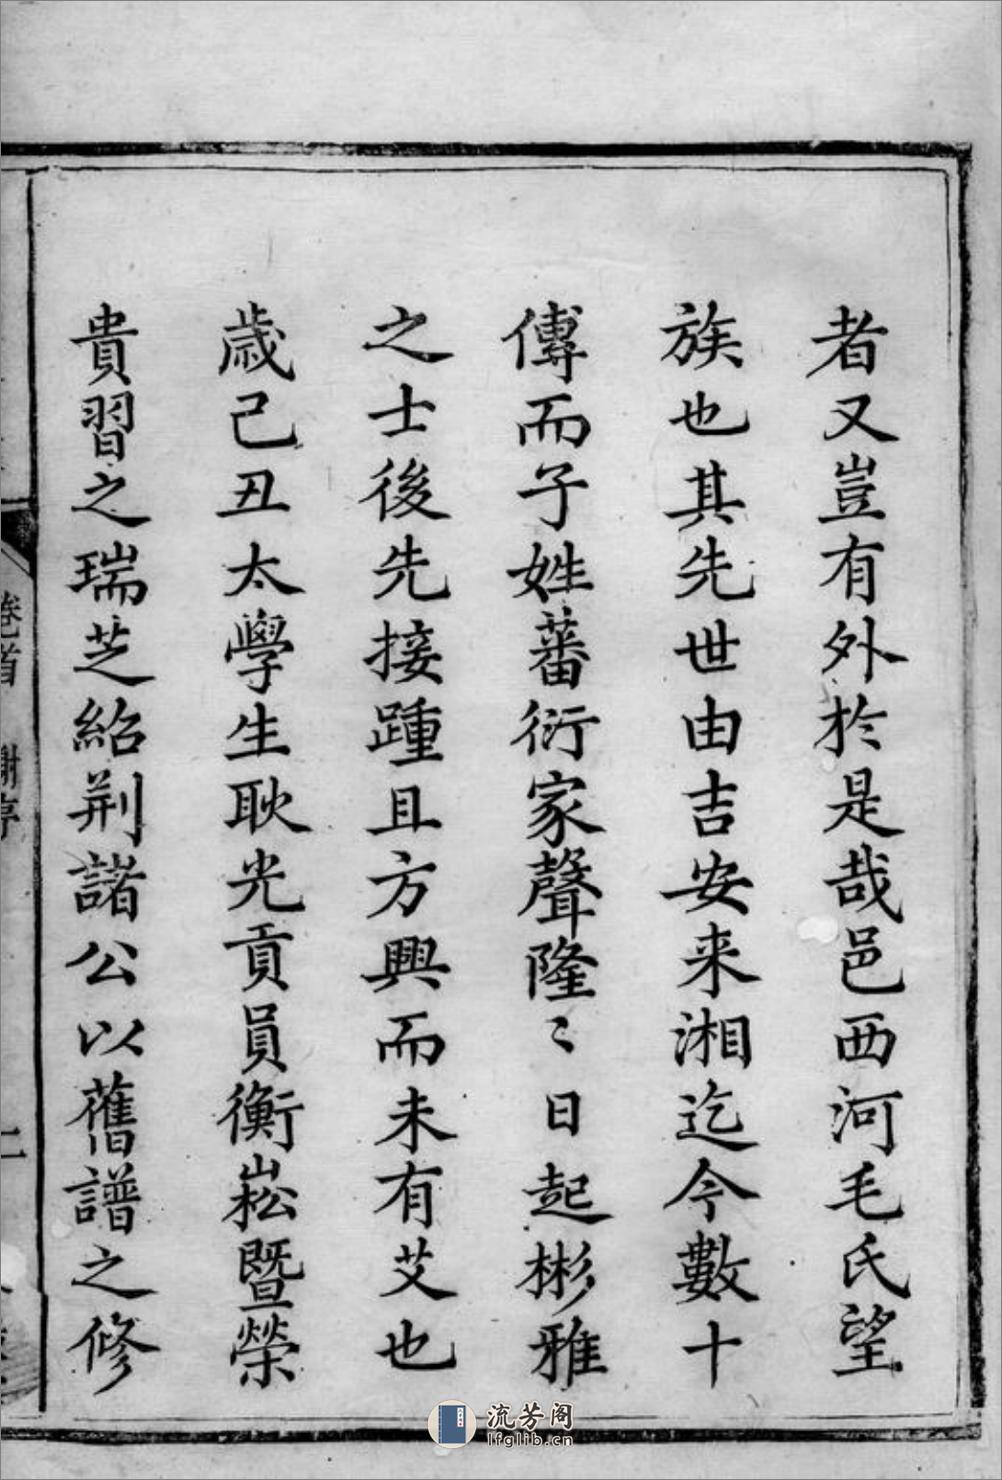 者又豈有外於是哉邑西河毛氏望
族也其先世由吉安来湘迄今數十
傳而子姓蕃衍家聲隆〻日起彬雅
之士後先接踵且方興而未有艾也
歲己丑太學生耿光貢員衡崧暨榮
貴習之瑞芝紹荆諸公以舊譜之修
卷首 謝序 二
流芳阁
lfglib.cn